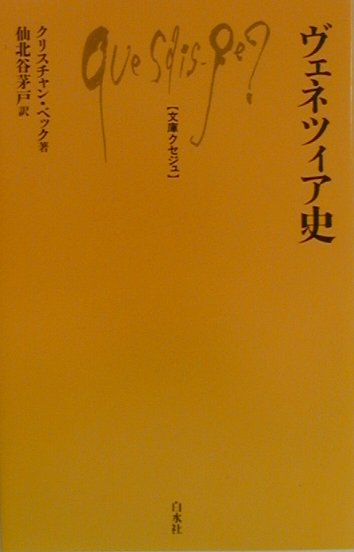 ヴェネツィア史
Que sais-je?
[文庫クセジュ]
クリスチャン・ベック著
仙北谷茅戸訳
白水社